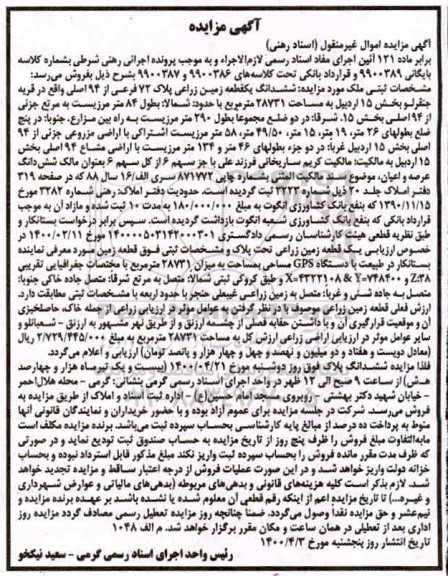 آگهی مزایده
آگهی مزایده اموال غیرمنقول (اسناد رهنی)
برابر ماده ۱۲۱ آئین اجرای مفاد اسناد رسمی لازم‌الاجراء و به موجب پرونده اجرائی رهنی شرطی بشماره کلاسه
بایگانی ۹۹۰۰۳۸۹ و قرارداد بانکی تحت کلاسه‌های ۹۹۰۰۳۸۶ و ۹۹۰۰۳۸۷ بشرح ذیل بفروش می‌رسد:
مشخصات ثبتی ملک مورد مزایده: ششدانگ یکقطعه زمین زراعی پلاک ۷۲ فرعی از ۹۴ اصلی واقع در قریه
جنقرلو بخش ۱۵ اردبیل به مساحت ۲۸۷۳۱ مترمربع با حدود: شمالا: بطول ۸۴ متر مرزیست به مرتع جزئی
از ۹۴ اصلی بخش ۱۵. شرقا: در دو ضلع مجموعا بطول ۳۹۰ متر مرزیست به راه بین مزارع. جنوبا: در پنج
ضلع بطولهای ۲۶ متر، ۱۹ متر، ۱۵ متر، ۴۹/۵۰ متر، ۵۸ متر مرزیست اشتراکی با اراضی مزروعی جزئی از ۹۴
اصلی بخش ۱۵ اردبیل غربا: در دو جزء بطولهای ۴۶ متر و ۱۳۴ متر مرزیست با اراضی مشاع ۹۴ اصلی بخش
۱۵ اردبیل به مالکیت: مالکیت کریم ساریخانی فرزند علی با جز سهم ۶ از کل سهم ۶ بعنوان مالک شش‌دانگ
عرصه و اعیان، موضوع سند مالکیت المثنی بشماره چاپی ۸۷۱۷۷۲ سری الف/۱۶ سال ۸۸ که در صفحه ۳۱۹
دفتر املاک جلد ۲۰ ذیل شماره ۳۲۲۳ ثبت گردیده است. حدودیت دفتر املاک: رهنی شماره ۳۲۸۲ مورخ
۱۳۹۰/۱۱/۱۵ که بنفع بانک کشاورزی آنگوت به مبلغ ۱۸۰/۰۰۰/۰۰۰ به مدت ۱۰ ثبت شده و مازاد آن به موجب
قرارداد بانکی که بنفع بانک کشاورزی شعبه آنگوت بازداشت گردیده است. سپس برابر درخواست بستانکار و
طبق نظریه قطعی هیئت کارشناسان رسمی دادگستری ۱۴۰۰۰۰۵۰۳۱۴۲۰۰۰۳۰۱ مورخ ۱۴۰۰/۰۲/۱۱ در
خصوص ارزیابی یک قطعه زمین زراعی تحت پلاک و مشخصات ثبتی فوق قطعه زمین مورد معرفی نماینده
بستانکار در طبیعت با دستگاه GPS مساحی بمساحت به میزان ۲۸۷۳۱ مترمربع با مختصات جغرافیایی تقریبی
Z:۳۸ و X=۴۳۲۲۱۰۸ & Y=۷۴۸۴۰۰ و طبق کروکی ثبتی شمالا: متصل به مرتع شرقا: متصل جاده خاکی جنوبا:
متصل به جاده شنی و غربا: متصل به زمین زراعی غیبعلی حنجر با حدود اربعه با مشخصات ثبتی مطابقت دارد.
ارزش فعلی قطعه زمین زراعی موصوف با در نظر گرفتن به عوامل موثر در ارزیابی زراعی از جمله خاک، حاصلخیزی
آن و موقعیت قرارگیری آن و با داشتن حقابه فصلی از چشمه ارزنق و از طریق نهر مشهور به ارزنق - شعبانلو و
سایر عوامل موثر در ارزیابی اراضی زراعی ارزش کل به مساحت ۲۸۷۳۱ مترمربع به مبلغ ۲/۷۲۹/۴۴۵/۰۰۰ ریال
(معادل دویست و هفتاد و دو میلیون و نهصد و چهل و چهار هزار و پانصد تومان) ارزیابی و اعلام می‌گردد.
فلذا مزایده ششدانگ پلاک فوق روز دوشنبه مورخ ۱۴۰۰/۰۴/۲۱ (بیست و یک تیرماه هزار و چهارصد
ه.ش) از ساعت ۹ صبح الی ۱۲ ظهر در واحد اجرای اسناد رسمی گرمی بنشانی: گرمی - محله هلال‌احمر
- خیابان شهید دکتر بهشتی - روبروی مسجد امام حسین(ع) - اداره ثبت اسناد و املاک از طریق مزایده به
فروش می‌رسد. شرکت در جلسه مزایده برای عموم آزاد بوده و با حضور خریداران و نمایندگان قانونی آنها
منوط به پرداخت ده درصد از مبالغ پایه کارشناسی بحساب سپرده ثبت می‌باشد. برنده مزایده مکلف است
مابه‌التفاوت مبلغ فروش را ظرف پنج روز از تاریخ مزایده به حساب صندوق ثبت تودیع نماید و در صورتی
که ظرف مدت مقرر مانده فروش را بحساب سپرده ثبت واریز نکند مبلغ مذکور قابل استرداد نبوده و بحساب
خزانه دولت واریز خواهد شد و در این صورت عملیات فروش از درجه اعتبار ساقط و مزایده تجدید خواهد
شد. لازم بذکر است کلیه هزینه‌های قانونی و بدهی‌های مربوطه (بدهی‌های مالیاتی و عوارض شهرداری
و غیره...) تا تاریخ مزایده اعم از اینکه رقم قطعی آن معلوم شده یا نشده باشد بر عهده برنده مزایده و
نیم‌عشر و حق مزایده نقداً وصول می‌گردد. ضمنا چنانچه روز مزایده تعطیل رسمی مصادف گردد مزایده روز
اداری بعد از تعطیلی در همان ساعت و مکان مقرر برگزار خواهد شد. م الف ۱۰۴۸
تاریخ انتشار روز پنجشنبه مورخ ۱۴۰۰/۴/۳
رئیس واحد اجرای اسناد رسمی گرمی - سعید نیکخو